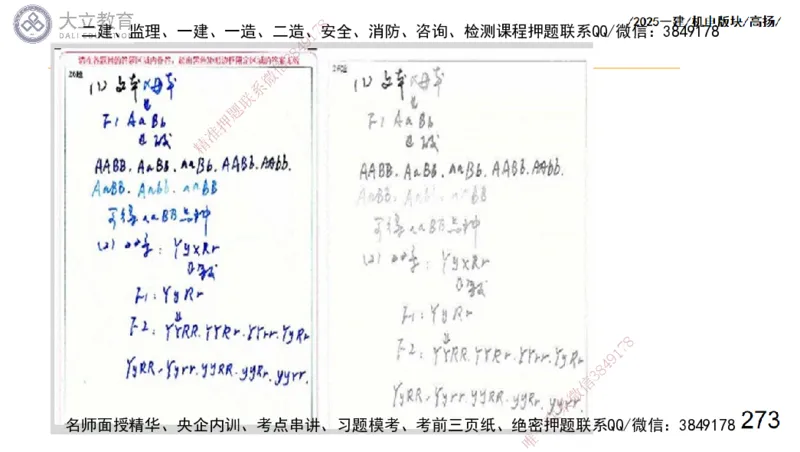 大立教育
DALI EDUCATION
/2025一建/机电版块/高扬/
二建、监理、一建、一造、二造、安全、消防、咨询、检测课程押题联系QQ/微信：3849178
请在各题目的答题区域内作答，超出黑色矩形边框限定区域的答案无效
26题
(1)
F1 AaBb
AABB. AaBB. aaBb. AABb. AAbb.
AaBb. Aabb. aaBB
可得 aaBB
(2) YyXRr
F1: YyRr
F2: YYRR. YYRr. YYrr. YyRr
YyRR. Yyrr. yyRR. yyRr. yyrr.
26题
(1)
F1 AaBb
AABB. AaBB. aaBb. AABb. AAbb.
AaBb. Aabb. aaBB
可得 aaBB
(2) YyXRr
F1: YyRr
F2: YYRR. YYRr. YYrr. YyRr
YyRR. Yyrr. yyRR. yyRr. yyrr.
名师面授精华、央企内训、考点串讲、习题模考、考前三页纸、绝密押题联系QQ/微信：3849178
273